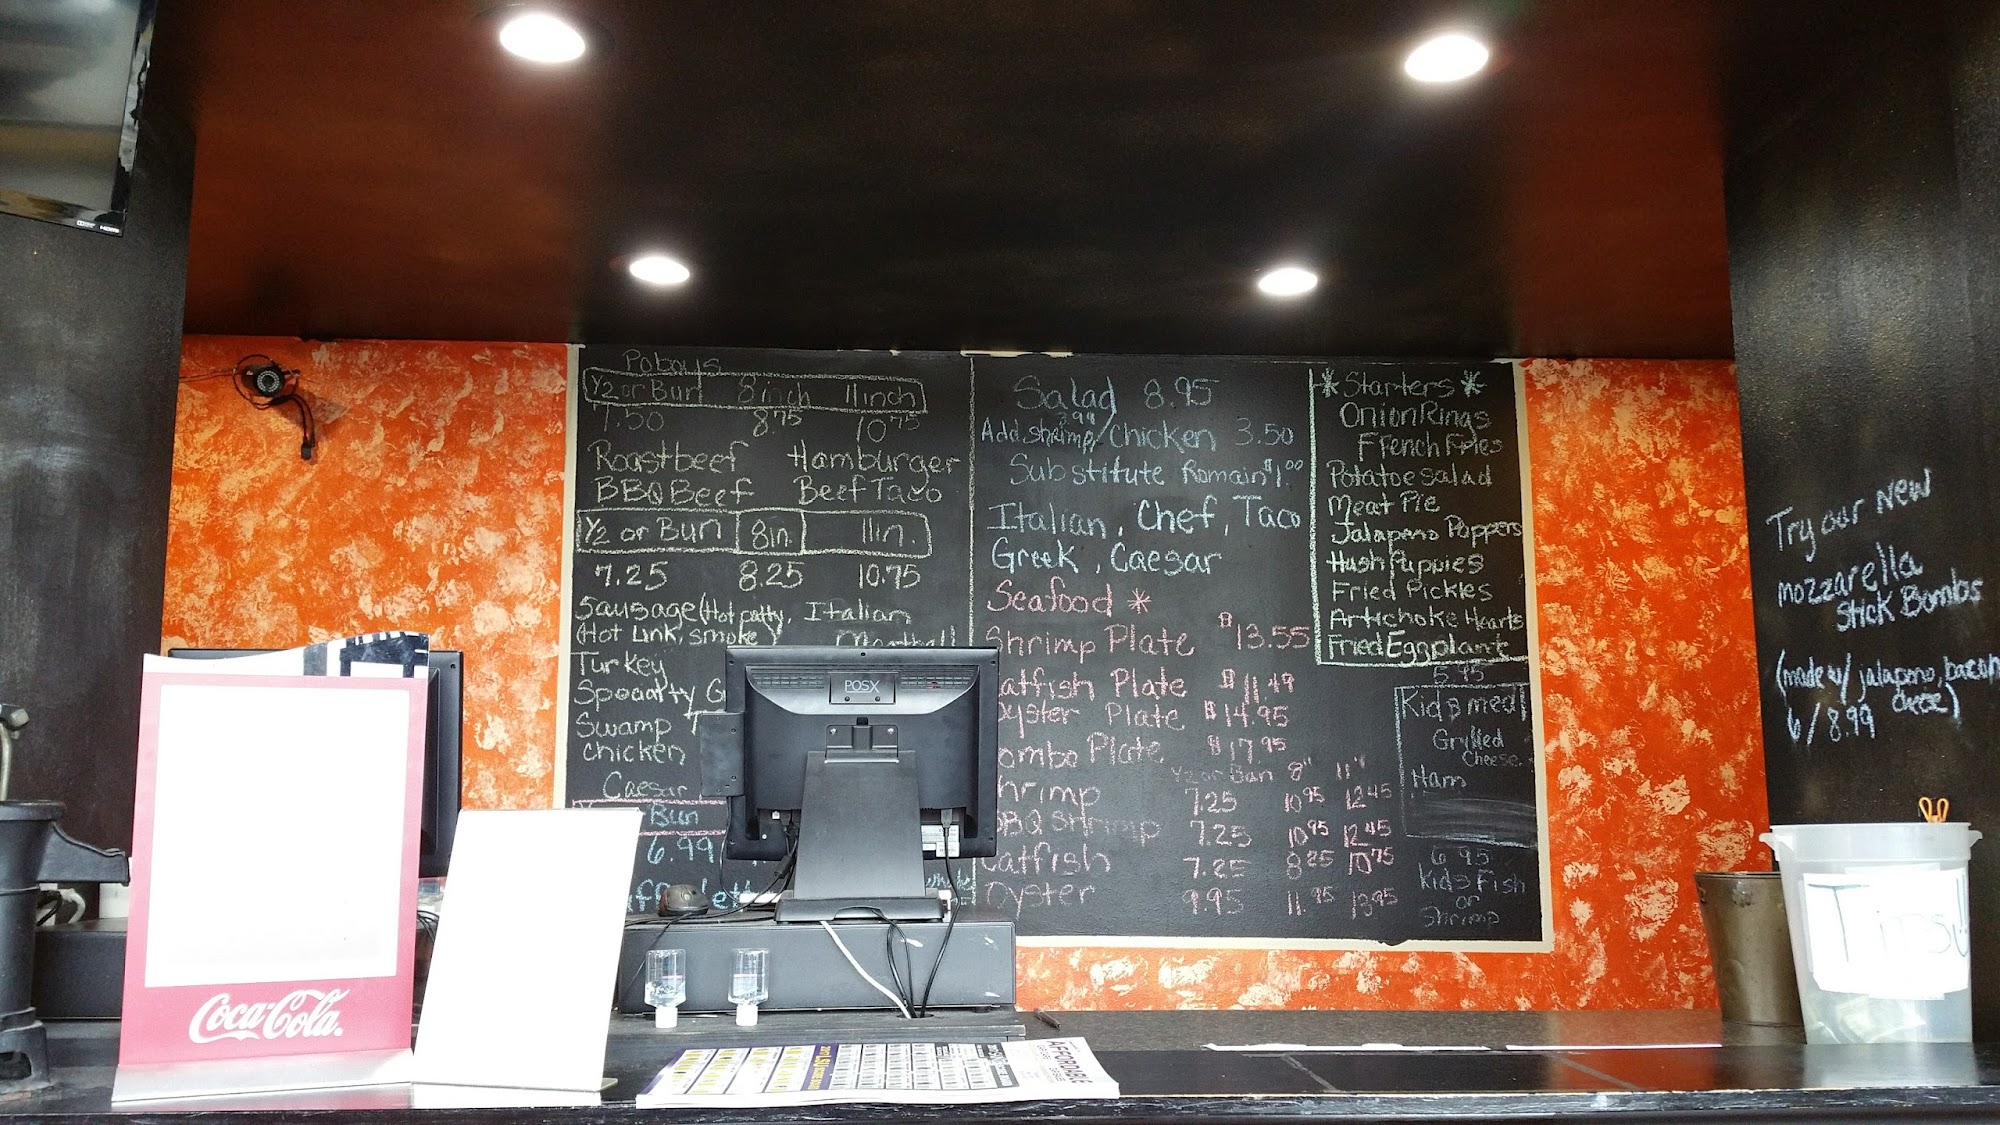 Poboys
1/2 or Bun 8 inch 11 inch
7.50 8.75 10.75
Roastbeef Hamburger
BBQ Beef Beef Taco
1/2 or Bun 8in. 11in.
7.25 8.25 10.75
Sausage (Hot patty, Italian
(Hot Link, smoke)
Turkey
Specialty G
Swamp
chicken
Caesar
Bun
6.99
Salad 8.95
3.99
Add shrimp/chicken 3.50
Substitute Romain $1.00
Italian, Chef, Taco
Greek, Caesar
Seafood *
Shrimp Plate $13.55
atfish Plate $11.49
oyster Plate $14.95
ombo Plate $17.95
1/2 or Bun 8" 11"
hrimp 7.25 10.95 12.45
BQ Shrimp 7.25 10.95 12.45
Catfish 7.25 8.25 10.75
Oyster 9.95 11.95 13.95
* Starters *
Onion Rings
French Fries
Potatoe salad
Meat Pie
Jalapeno Poppers
Hush Puppies
Fried Pickles
Artichoke Hearts
Fried Eggplant
5.95
Kid's meal
Grylled
Cheese
Ham
6.95
Kids Fish
or
Shrimp
Try our New
mozzarella
Stick Bombs
(made w/ jalapeno, bacon
cheese)
6/8.99
POSX
Coca-Cola
AFFORDABLE
Tips
HDMI